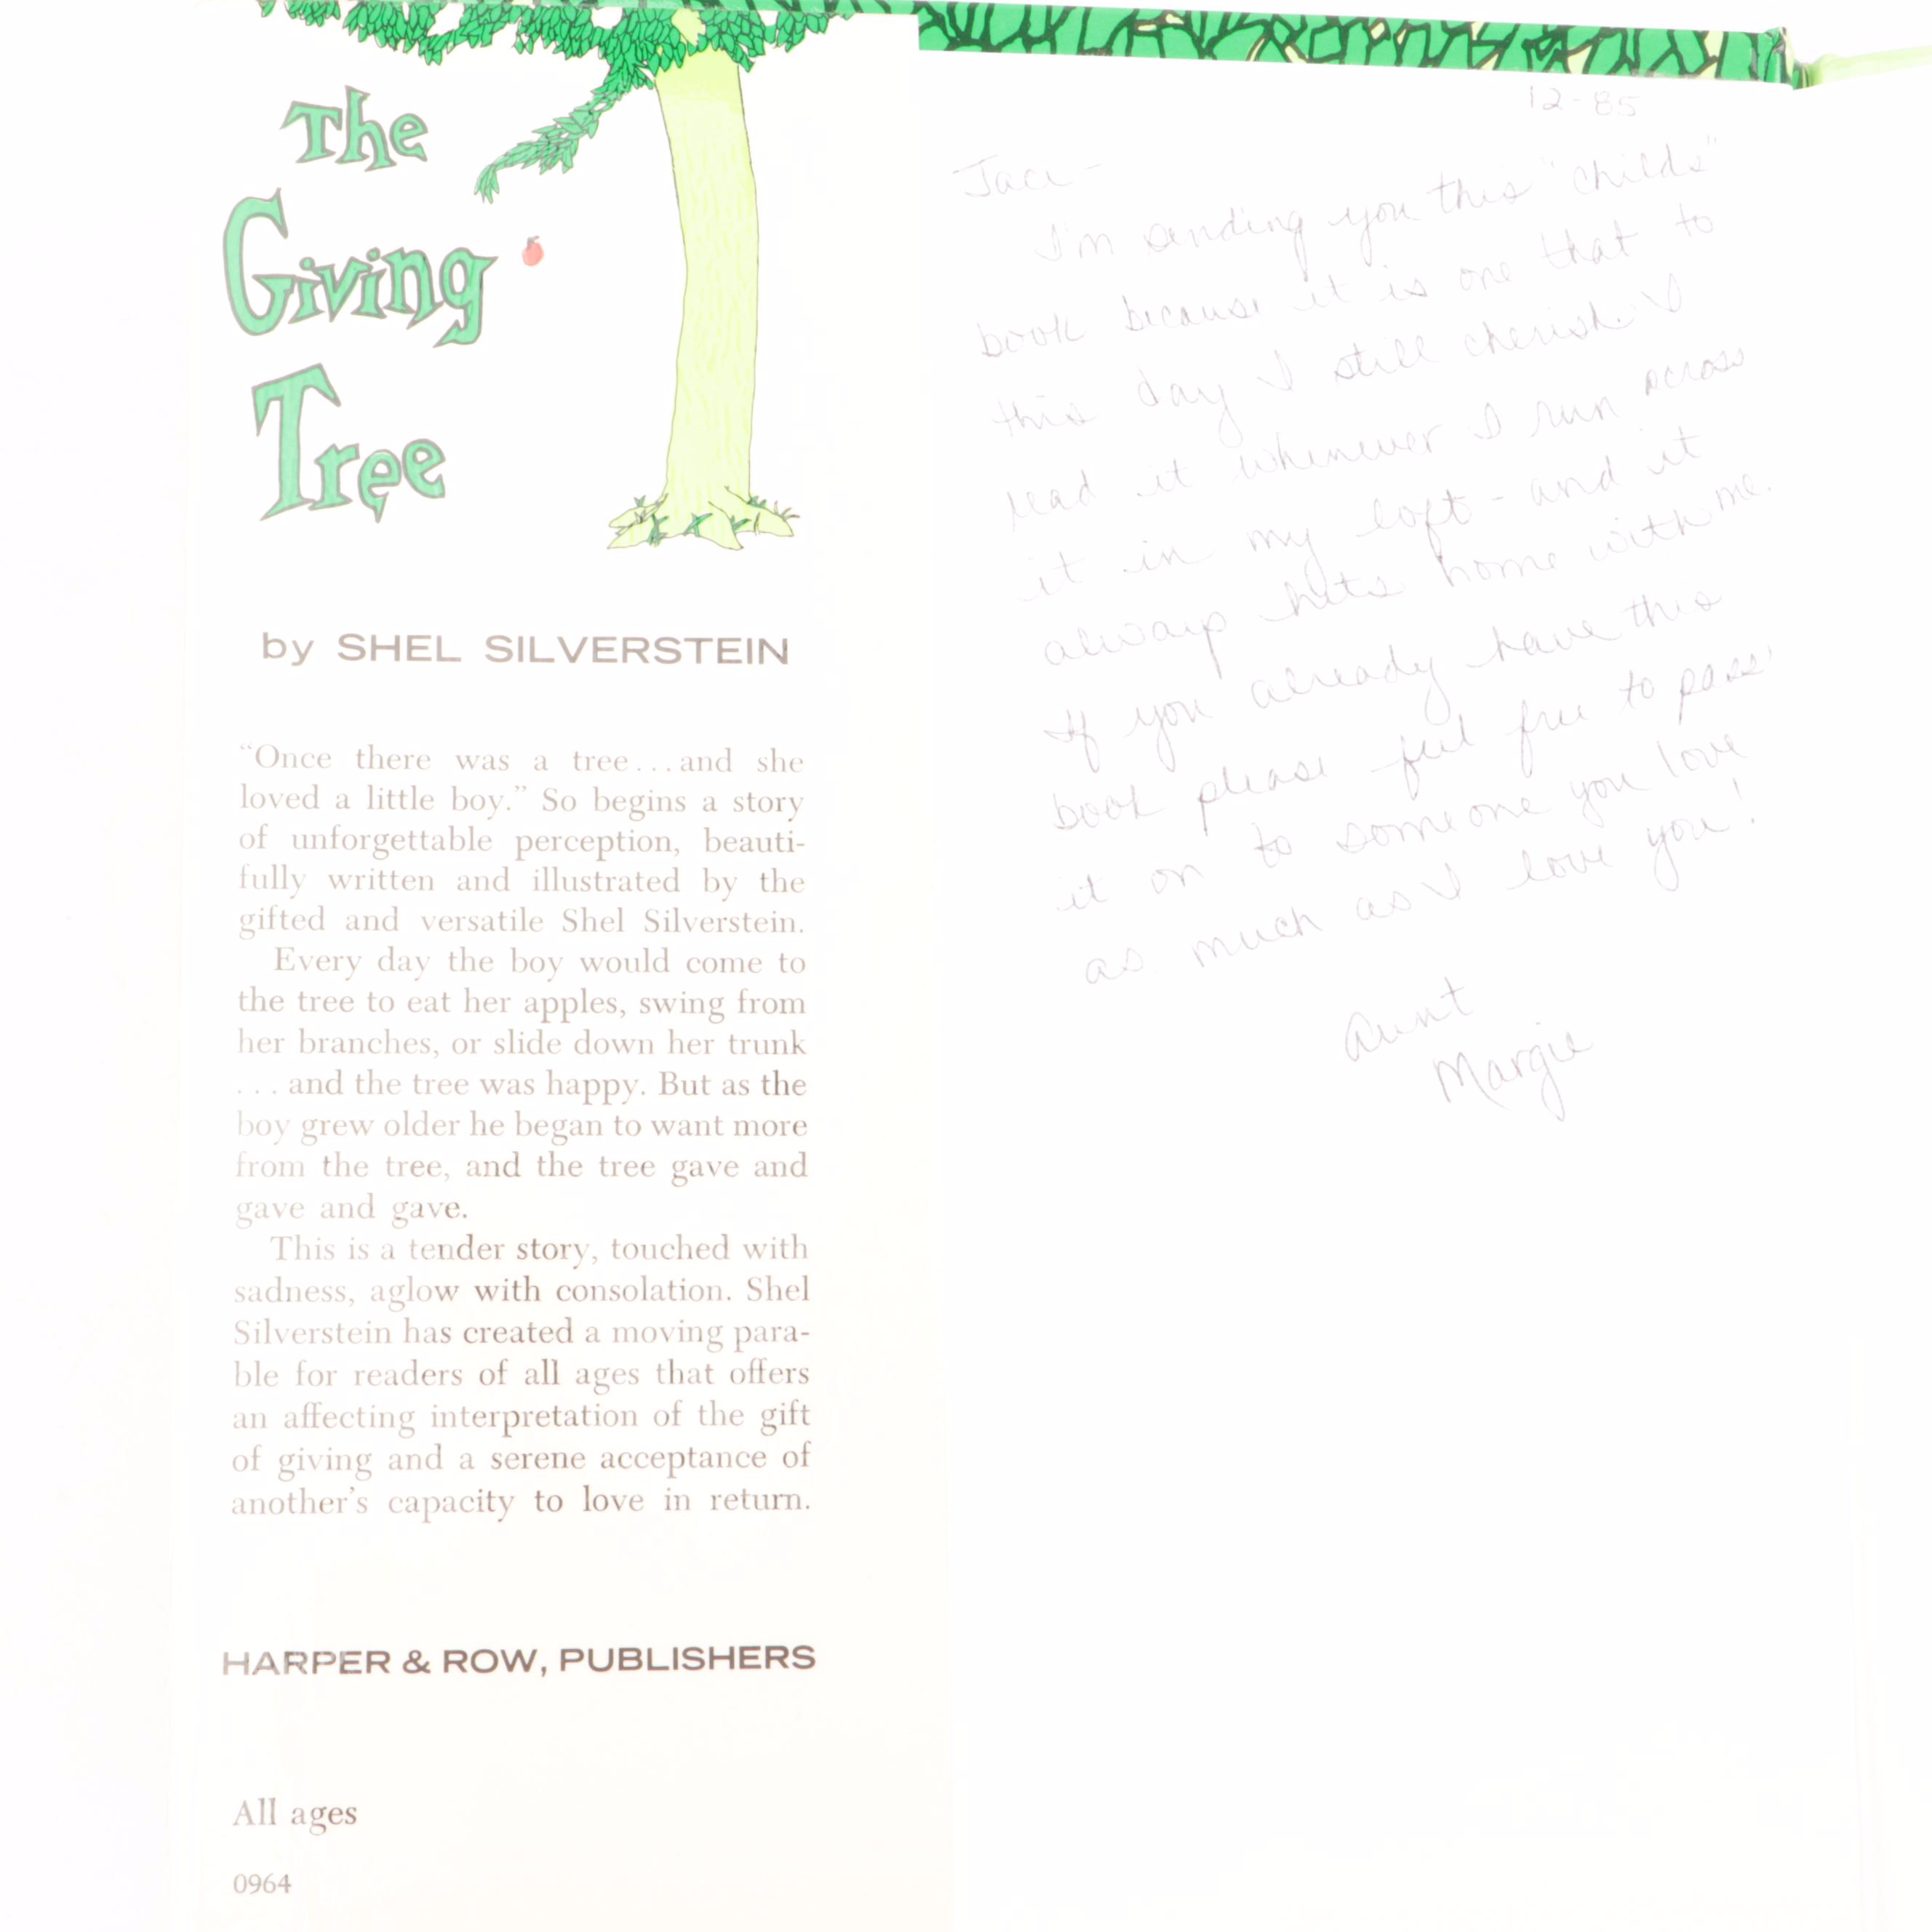 The
Giving
Tree
by SHEL SILVERSTEIN
“Once there was a tree...and she
loved a little boy.” So begins a story
of unforgettable perception, beauti-
fully written and illustrated by the
gifted and versatile Shel Silverstein.
Every day the boy would come to
the tree to eat her apples, swing from
her branches, or slide down her trunk
...and the tree was happy. But as the
boy grew older he began to want more
from the tree, and the tree gave and
gave and gave.
This is a tender story, touched with
sadness, aglow with consolation. Shel
Silverstein has created a moving para-
ble for readers of all ages that offers
an affecting interpretation of the gift
of giving and a serene acceptance of
another’s capacity to love in return.
HARPER & ROW, PUBLISHERS
All ages
0964
12-85
Jaci -
I'm sending you this "childs"
book because it is one that to
this day I still cherish. I
read it whenever I run across
it in my loft - and it
always hits home with me.
If you already have this
book please feel free to pass
it on to someone you love
as much as I love you!
Aunt
Margie